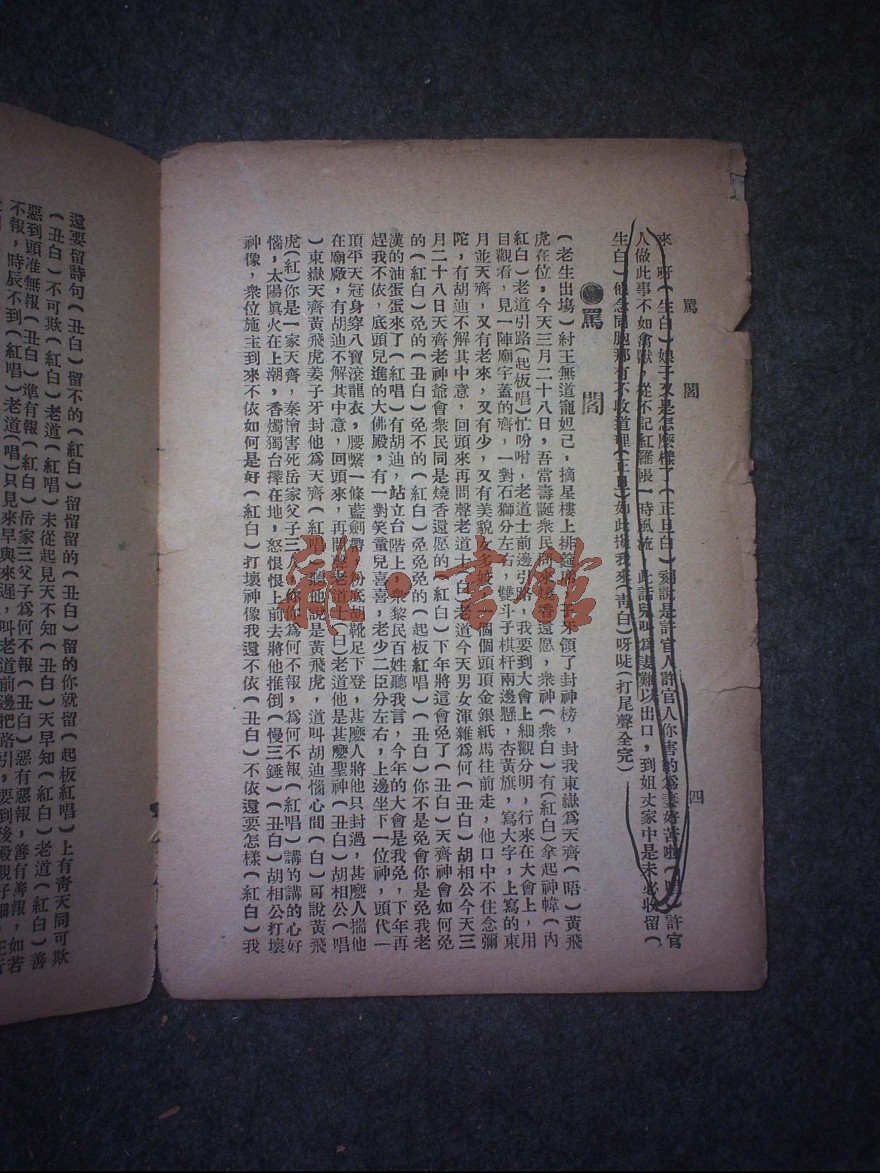 罵閻 四
來呀(生白)娘子又是怎麽樣了(正旦白)刻說是許官人許官人你害的爲妻好苦啦(唱)許官
人做此事不如禽獸,從不記紅羅帳一時風流 此話兒叫爲妻難以出口,到姐丈家中是未必收留(
生白)他念同胞那有不收道理(正旦)如此拖我來(青白)呀唗(打尾聲全完)
●罵 閻
(老生出塲)紂王無道寵妲己,摘星樓上排筵 子牙領了封神榜,封我東嶽爲天齊(唔)黃飛
虎在位,今天三月二十八日,吾當壽誕衆民 香還愿,衆神(衆白)有(紅白)拿起神幃(內
紅白)老道引路(起板唱)忙吩咐,老道士前邊引路,我要到大會上細觀分明,行來在大會上,用
目觀看,見一陣廟宇蓋的齊,一對石獅分左右,雙斗子棋杆兩邊懸,杏黃旗,寫大字,上寫的東
月並天齊,又有老來,又有少,又有美貌女多嬌,一個個頭頂金銀紙馬往前走,他口中不住念彌
陀,有胡迪不解其中意,回頭來再問聲老道士(白)老道今天男女渾雜爲何(丑白)胡相公今天三
月二十八日天齊老神爺會衆民同是燒香還愿的(紅白)下年將這會免了(丑白)天齊神會如何免
的(紅白)免的(丑白)免不的(紅白)免免免的(起板紅唱)(丑白)你不是免會你是免我老
漢的油蛋蛋來了(紅唱)有胡迪,站立台階上,衆黎民百姓聽我言,今年的大會是我免,下年再
趕我不依,底頭兒進的大佛殿,有一對笑童兒喜喜,老少二臣分左右,上邊坐下一位神,頭代一
頂平天冠身穿八寶滾龍衣,腰繫一條藍劍帶,粉底胡靴足下登,甚麽人將他只封過,甚麽人揣他
在廟廠,有胡迪不解其中意,回頭來,再問聲老道士(白)老道他是甚麽聖神(丑白)胡相公(唱
)東嶽天齊黃飛虎姜子牙封他爲天齊(紅唱)聽他說是黃飛虎,道叫胡迪惱心間(白)可說黃飛
虎(紅)你是一家天齊,秦檜害死岳家父子三人你你爲何不報,爲何不報(紅唱)講的講的心好
惱,太陽眞火在上潮,香燭獨台摔在地,怒恨恨上前去將他推倒(慢三錘)(丑白)胡相公打壞
神像,衆位施主到來不依如何是好(紅白)打壞神像我還不依(丑白)不依還要怎樣(紅白)我
還要留詩句(丑白)留不的(紅白)留留留的(丑白)留的你就留(起板紅唱)上有青天同可欺
(丑白)不可欺(紅白)老道(紅唱)未從起見天不知(丑白)天早知(紅白)老道(紅白)善
惡到頭准無報(丑白)準有報(紅白)岳家三父子爲何不報(丑白)惡有惡報,善有善報,如若
不報,時辰不到(紅唱)老道(唱)只見來早與來遲,叫老道前邊把路引,要到後殿觀子細